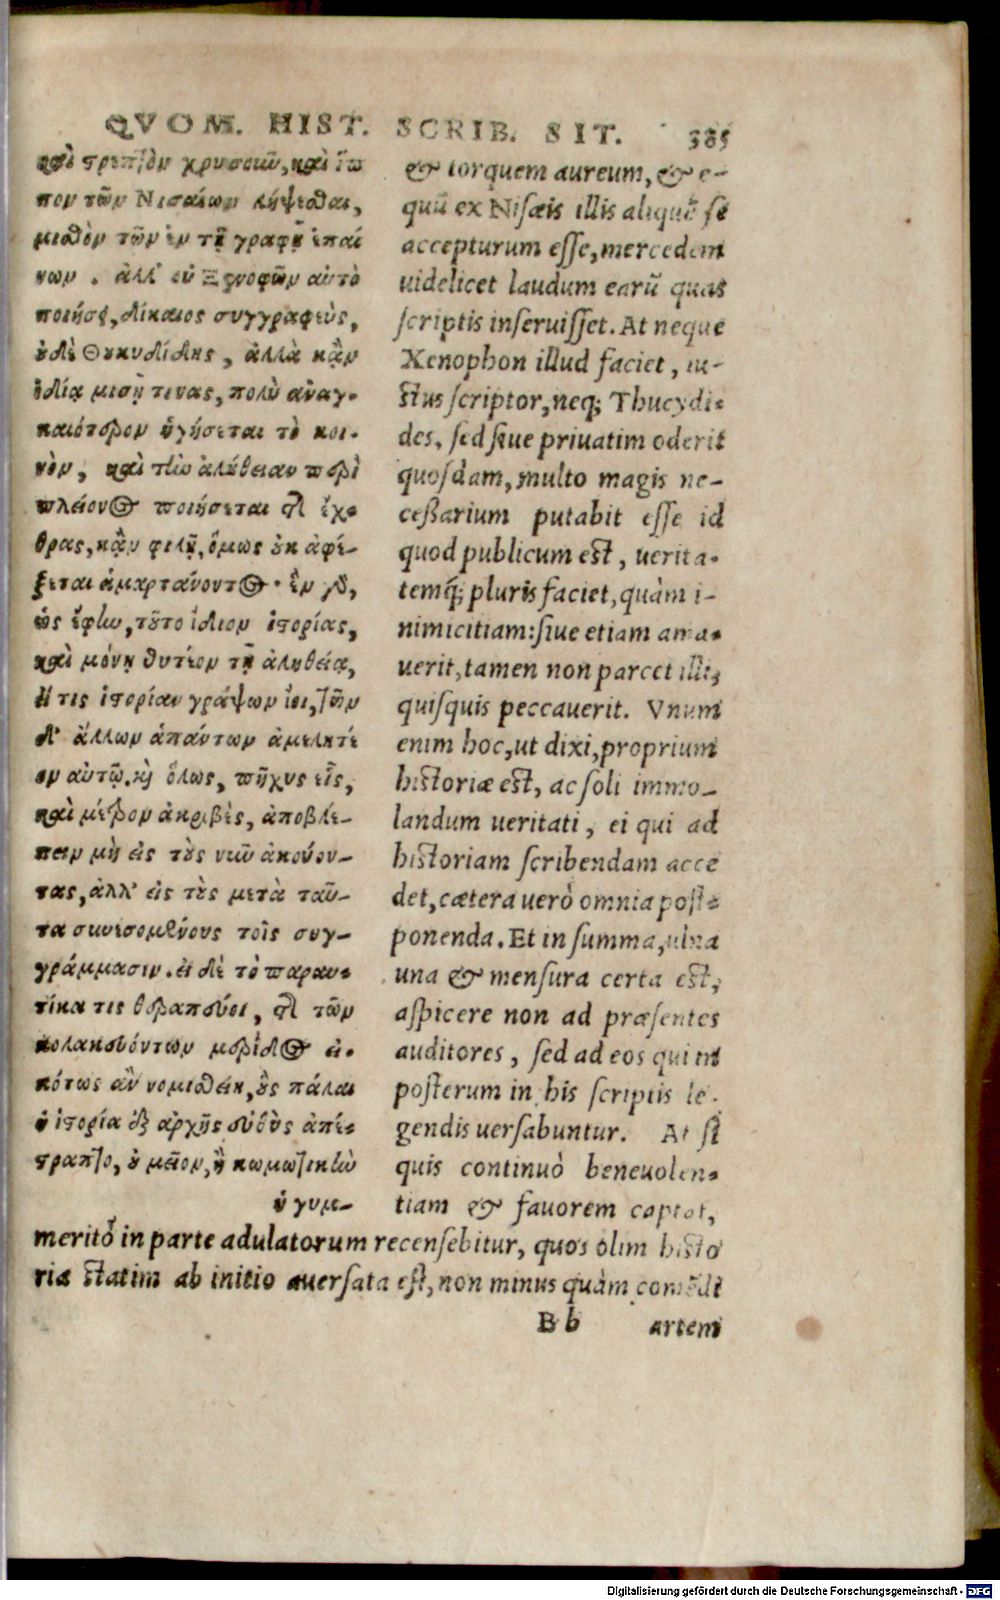 QVOM. HIST. SCRIB. SIT. 385
καὶ στρεπτὸν χρυσοῦν, καὶ ἵπ
πον τῶν Νισαίων λήψεσθαι,
μισθὸν τῶν ἐν τῇ γραφῇ ἐπαί
νων . ἀλλ' οὐ Ξενοφῶν αὐτὸ
ποιήσει, δίκαιος συγγραφεὺς,
οὐδὲ Θουκυδίδης, ἀλλὰ κᾂν
ἰδίᾳ μισῇ τινας, πολὺ ἀναγ-
καιότερον ἡγήσεται τὸ κοι-
νὸν, καὶ τὴν ἀλήθειαν περὶ
πλείονος ποιήσεται τῆς ἔχ-
θρας, κᾂν φιλῇ, ὅμως οὐκ ἀφέ-
ξεται ἁμαρτάνοντος· ἓν γὰρ,
ὡς ἔφην, τοῦτο ἴδιον ἱστορίας,
καὶ μόνῃ θυτέον τῇ ἀληθείᾳ,
εἴ τις ἱστορίαν γράψων ἴοι, τῶν
δ' ἄλλων ἁπάντων ἀμελητέ
ον αὐτῷ. καὶ ὅλως, πῆχυς εἷς,
καὶ μέτρον ἀκριβὲς, ἀποβλέ-
πειν μὴ εἰς τοὺς νῦν ἀκούον-
τας, ἀλλ' εἰς τοὺς μετὰ ταῦ-
τα συνεσομένους τοῖς συγ-
γράμμασιν. εἰ δὲ τὸ παραυ-
τίκα τις θεραπεύοι, τῆς τῶν
κολακευόντων μερίδος εἰ-
κότως ἂν νομισθείη, οὓς πάλαι
ἡ ἱστορία ἐξ ἀρχῆς εὐθὺς ἀπέ-
στραπτο, οὐ μεῖον, ἢ κωμωτικὴν
ἡ γυμ-
& torquem aureum, & e-
quũ ex Nisæis illis aliquẽ se
accepturum esse, mercedem
uidelicet laudum earũ quas
scriptis inseruisset. At neque
Xenophon illud faciet, iu-
stus scriptor, neq; Thucydi-
des, sed siue priuatim oderit
quosdam, multo magis ne-
ceßarium putabit esse id
quod publicum est, uerita-
temq́; pluris faciet, quàm i-
nimicitiam: siue etiam ama-
uerit, tamen non parcet illi,
quisquis peccauerit. Vnum
enim hoc, ut dixi, proprium
historiæ est, ac soli immo-
landum ueritati, ei qui ad
historiam scribendam acce
det, cætera uerò omnia post-
ponenda. Et in summa, ulna
una & mensura certa est,
aspicere non ad præsentes
auditores, sed ad eos qui in
posterum in his scriptis le-
gendis uersabuntur. At si
quis continuò beneuolen-
tiam & fauorem captat,
meritò in parte adulatorum recensebitur, quos olim histo
ria statim ab initio auersata est, non minus quàm comẽdi
Bb artem
Digitalisierung gefördert durch die Deutsche Forschungsgemeinschaft - DFG